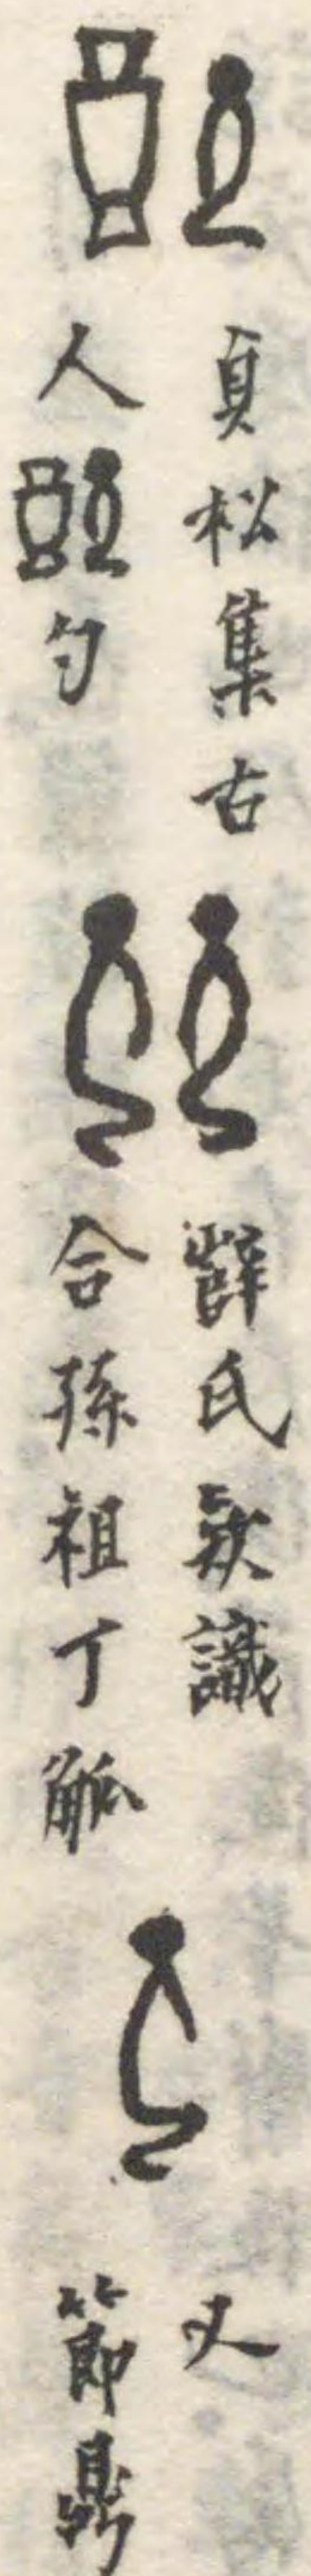 貞松集古
人勺
薛氏款識
合孫祖丁觚
又
節鼎